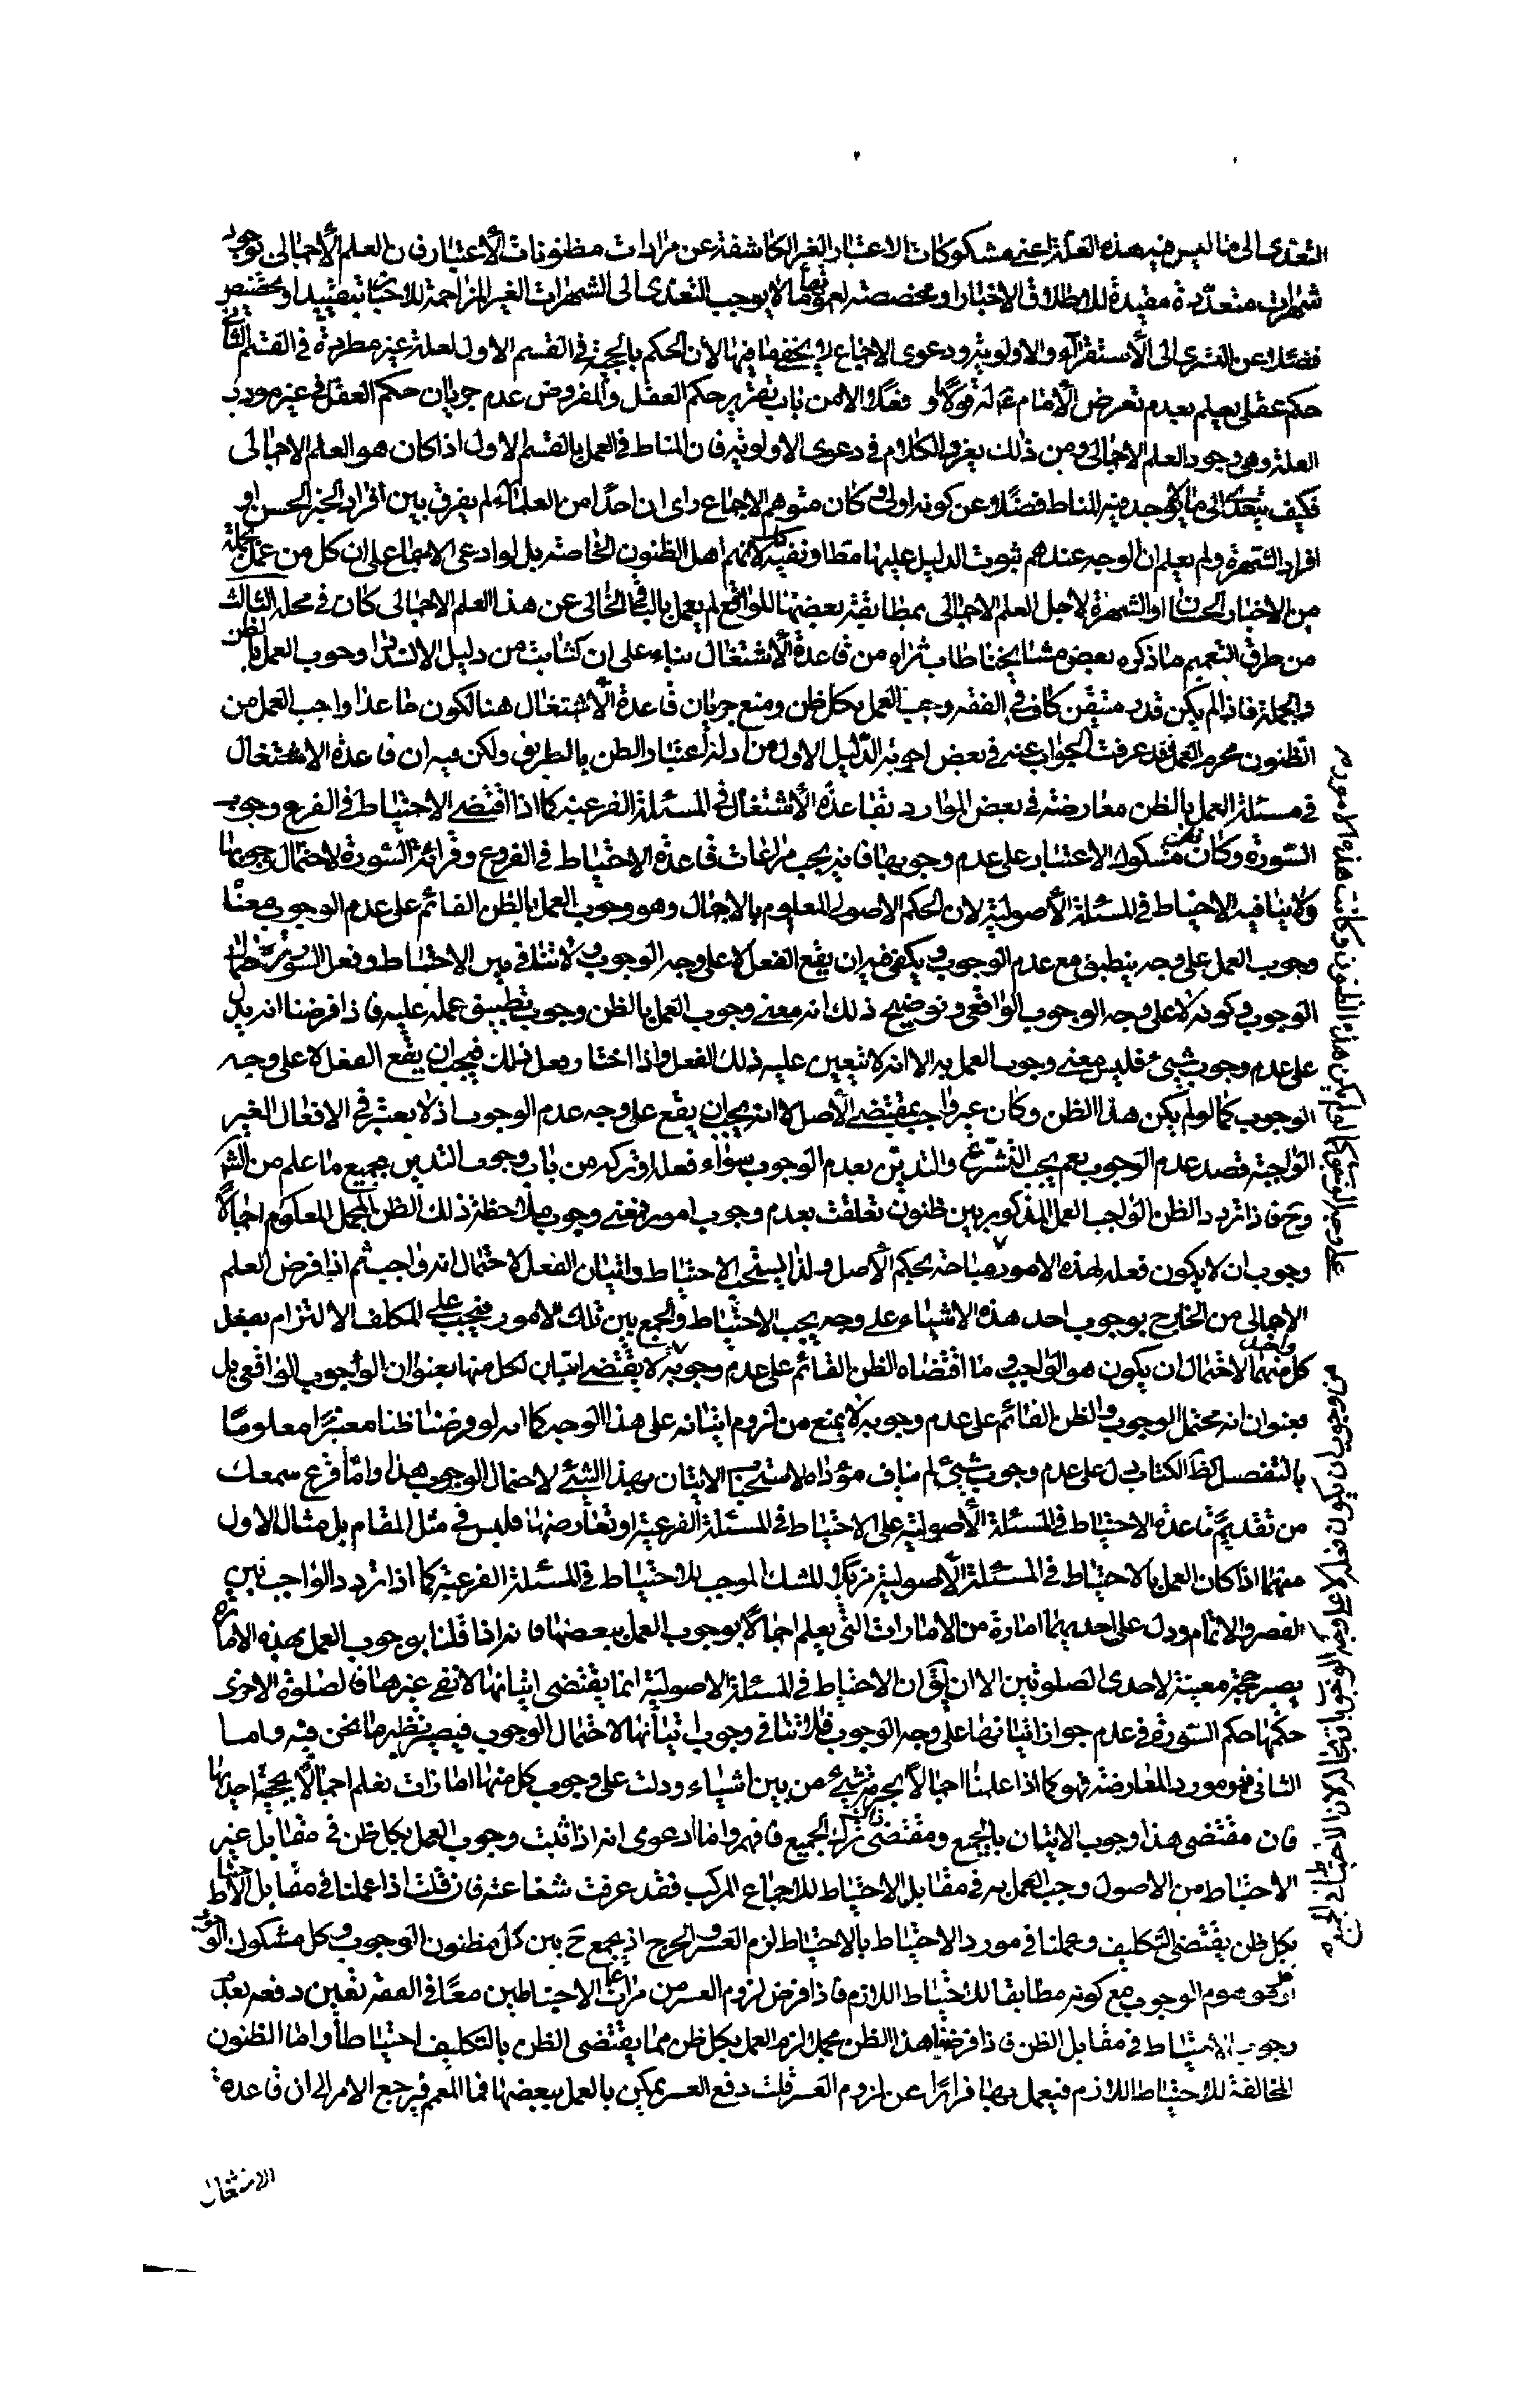 التعدى الى ما ليس فيه هذه العلة اعنى مشكوكات الاعتبار الغير الكاشفة عن مرادات مظنونات الاعتبار فان العلم الاجمالى بوجود
شهرات متعددة مقيدة لاطلاق الاخبار او مخصصة لعموماتها لا يوجب التعدى الى الشهرات الغير المزاحمة للاخبار بتقييد او تخصيص
فضلا عن التسرى الى الاستقراء والاولوية ودعوى الاجماع لا يخفى ما فيها لان الحكم بالحجية فى القسم الاول لعلة غير مطردة فى القسم الثانى
حكم عقلى يعلم بعدم تعرض الامام له قولا و فعلا الا من باب تقرير حكم العقل والمفروض عدم جريان حكم العقل فى غير مورد
العلة وهى وجود العلم الاجمالى ومن ذلك يعرف الكلام فى دعوى الاولوية فان المناط فى العمل بالقسم الاول اذا كان هو العلم الاجمالى
فكيف يتعدى الى ما لا يوجد فيه المناط فضلا عن كونه اولى وكان متوهم الاجماع راى ان احدا من العلماء لم يفرق بين افراد الخبر الحسن او
افراد الشهرة ولم يعلم ان الوجه عندهم ثبوت الدليل عليهما مطلقا او نفيه كذلك لانهم اهل الظنون الخاصة بل لو ادعى الاجماع على ان كل من عمل بجملة
من الاخبار الحسان او الشهرة لاجل العلم الاجمالى بمطابقة بعضها للواقع لم يعمل بالباقى الخالى عن هذا العلم الاجمالى كان فى محله الثالث
من طرق التعميم ما ذكره بعض مشايخنا طاب ثراه من قاعدة الاشتغال بناء على ان الثابت من دليل الانسداد وجوب العمل بالظن
فى الجملة فاذا لم يكن قدر متيقن كاف فى الفقه وجب العمل بكل ظن ومنع جريان قاعدة الاشتغال هنا لكون ما عدا واجب العمل من
الظنون محرم العمل فقد عرفت الجواب عنه فى بعض اجوبة الدليل الاول من ادلة اعتبار الظن بالطريق ولكن فيه ان قاعدة الاشتغال
فى مسئلة العمل بالظن معارضة فى بعض الموارد بقاعدة الاشتغال فى المسئلة الفرعية كما اذا اقتضى الاحتياط فى الفرع وجوب
السورة وكان ظن مشكوك الاعتبار على عدم وجوبها فانه يجب مراعات قاعدة الاحتياط فى الفروع وقرائة السورة لاحتمال وجوبها
ولا ينافيه الاحتياط فى المسئلة الاصولية لان الحكم الاصولى المعلوم بالاجمال وهو وجوب العمل بالظن القائم على عدم الوجوب معناه
وجوب العمل على وجه ينطبق مع عدم الوجوب ويكفى فيه ان يقع الفعل لا على وجه الوجوب ولا تنافى بين الاحتياط وفعل السورة لاحتمال
الوجوب وكونه لا على وجه الوجوب الواقعى وتوضيح ذلك ان معنى وجوب العمل بالظن وجوب تطبيق عمله عليه فاذا فرضنا انه يدل
على عدم وجوب شىء فليس معنى وجوب العمل به الا انه لا يتعين عليه ذلك الفعل فاذا اختار فعل ذلك فيجب ان يقع الفعل لا على وجه
الوجوب كما لو لم يكن هذا الظن وكان غير واجب بمقتضى الاصل لا انه يجب ان يقع على وجه عدم الوجوب اذ لا يعتبر فى الافعال الغير
الواجبة قصد عدم الوجوب نعم يجب التشرع والتدين بعدم الوجوب سواء فعله او تركه من باب وجوب التدين بجميع ما علم من الشرع
وح فاذا تردد الظن الواجب العمل المذكور بين ظنون تعلقت بعدم وجوب امور فمعنى وجوب ملاحظة ذلك الظن المجمل المعلوم اجمالا
وجوب ان لا يكون فعله لهذه الامور مباحة بحكم الاصل ولذا يستحب الاحتياط واتيان الفعل لاحتمال انه واجب ثم اذا فرض العلم
الاجمالى من الخارج بوجوب احد هذه الاشياء على وجه يجب الاحتياط والجمع بين تلك الامور فيجب على المكلف الالتزام بفعل
كل واحد منهما لاحتمال ان يكون هو الواجب وما اقتضاه الظن القائم على عدم وجوبه لا يقتضى اتيان كل منها بعنوان الوجوب الواقعى بل
بعنوان انه محتمل الوجوب والظن القائم على عدم وجوبه لا يمنع من لزوم اتيانه على هذا الوجه كما انه لو فرضنا ظنا معتبرا معلوما
بالتفصيل كظ الكتاب دل على عدم وجوب شىء لم يناف مؤداه لاستحباب الاتيان بهذا الشىء لاحتمال الوجوب هذا واما ما قرع سمعك
من تقديم قاعدة الاحتياط فى المسئلة الاصولية على الاحتياط فى المسئلة الفرعية او تعارضهما فليس فى مثل المقام بل مثال الاول
منهما اذا كان العمل بالاحتياط فى المسئلة الاصولية مزيلا للشك الموجب للاحتياط فى المسئلة الفرعية كما اذا تردد الواجب بين
القصر والاتمام ودل على احدهما امارة من الامارات التى يعلم اجمالا بوجوب العمل ببعضها فانه اذا قلنا بوجوب العمل بهذه الامارة
يصير حجة معينة لاحدى الصلوتين الا ان يق ان الاحتياط فى المسئلة الاصولية انما يقتضى اتيانها لا نفى غيرها فالصلوة الاخرى
حكمها حكم السورة فى عدم جواز اتيانها على وجه الوجوب فلا تنافى وجوب اتيانها لاحتمال الوجوب فيصير نظير ما نحن فيه واما
الثانى فهو مورد المعارضة فهو كما اذا علمنا اجمالا بحرمة شىء من بين اشياء ودلت على وجوب كل منها امارات نعلم اجمالا بحجية احديها
فان مقتضى هذا وجوب الاتيان بالجميع ومقتضى ذاك ترك الجميع فافهم واما دعوى انه اذا ثبت وجوب العمل بكل ظن فى مقابل غير
الاحتياط من الاصول وجب العمل به فى مقابل الاحتياط للاجماع المركب فقد عرفت شناعته فان قلت اذا عملنا فى مقابل الاحتياط
بكل ظن يقتضى التكليف وعملنا فى مورد الاحتياط بالاحتياط لزم العسر والحرج اذ يجمع ح بين كل مظنون الوجوب وكل مشكوك الوجوب
او موهوم الوجوب مع كونه مطابقا للاحتياط اللازم فاذا فرض لزوم العسر من مراعات الاحتياطين معا فى الفقه تعين دفعه بعدم
وجوب الاحتياط فى مقابل الظن فاذا فرضنا هذا الظن مجملا لزم العمل بكل ظن مما يقتضى الظن بالتكليف احتياطا واما الظنون
المخالفة للاحتياط اللازم فيعمل بها فرارا عن لزوم العسر قلت دفع العسر يمكن بالعمل ببعضها فما المعمم فيرجع الامر الى ان قاعدة
الاشتغال